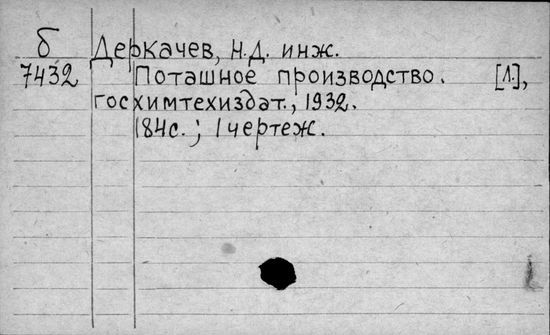 б Деркачев, Н.Д. инж.
7432 Поташное производство. [Л.],
госхимтехиздат., 1932.
184с.; 1 чертеж.